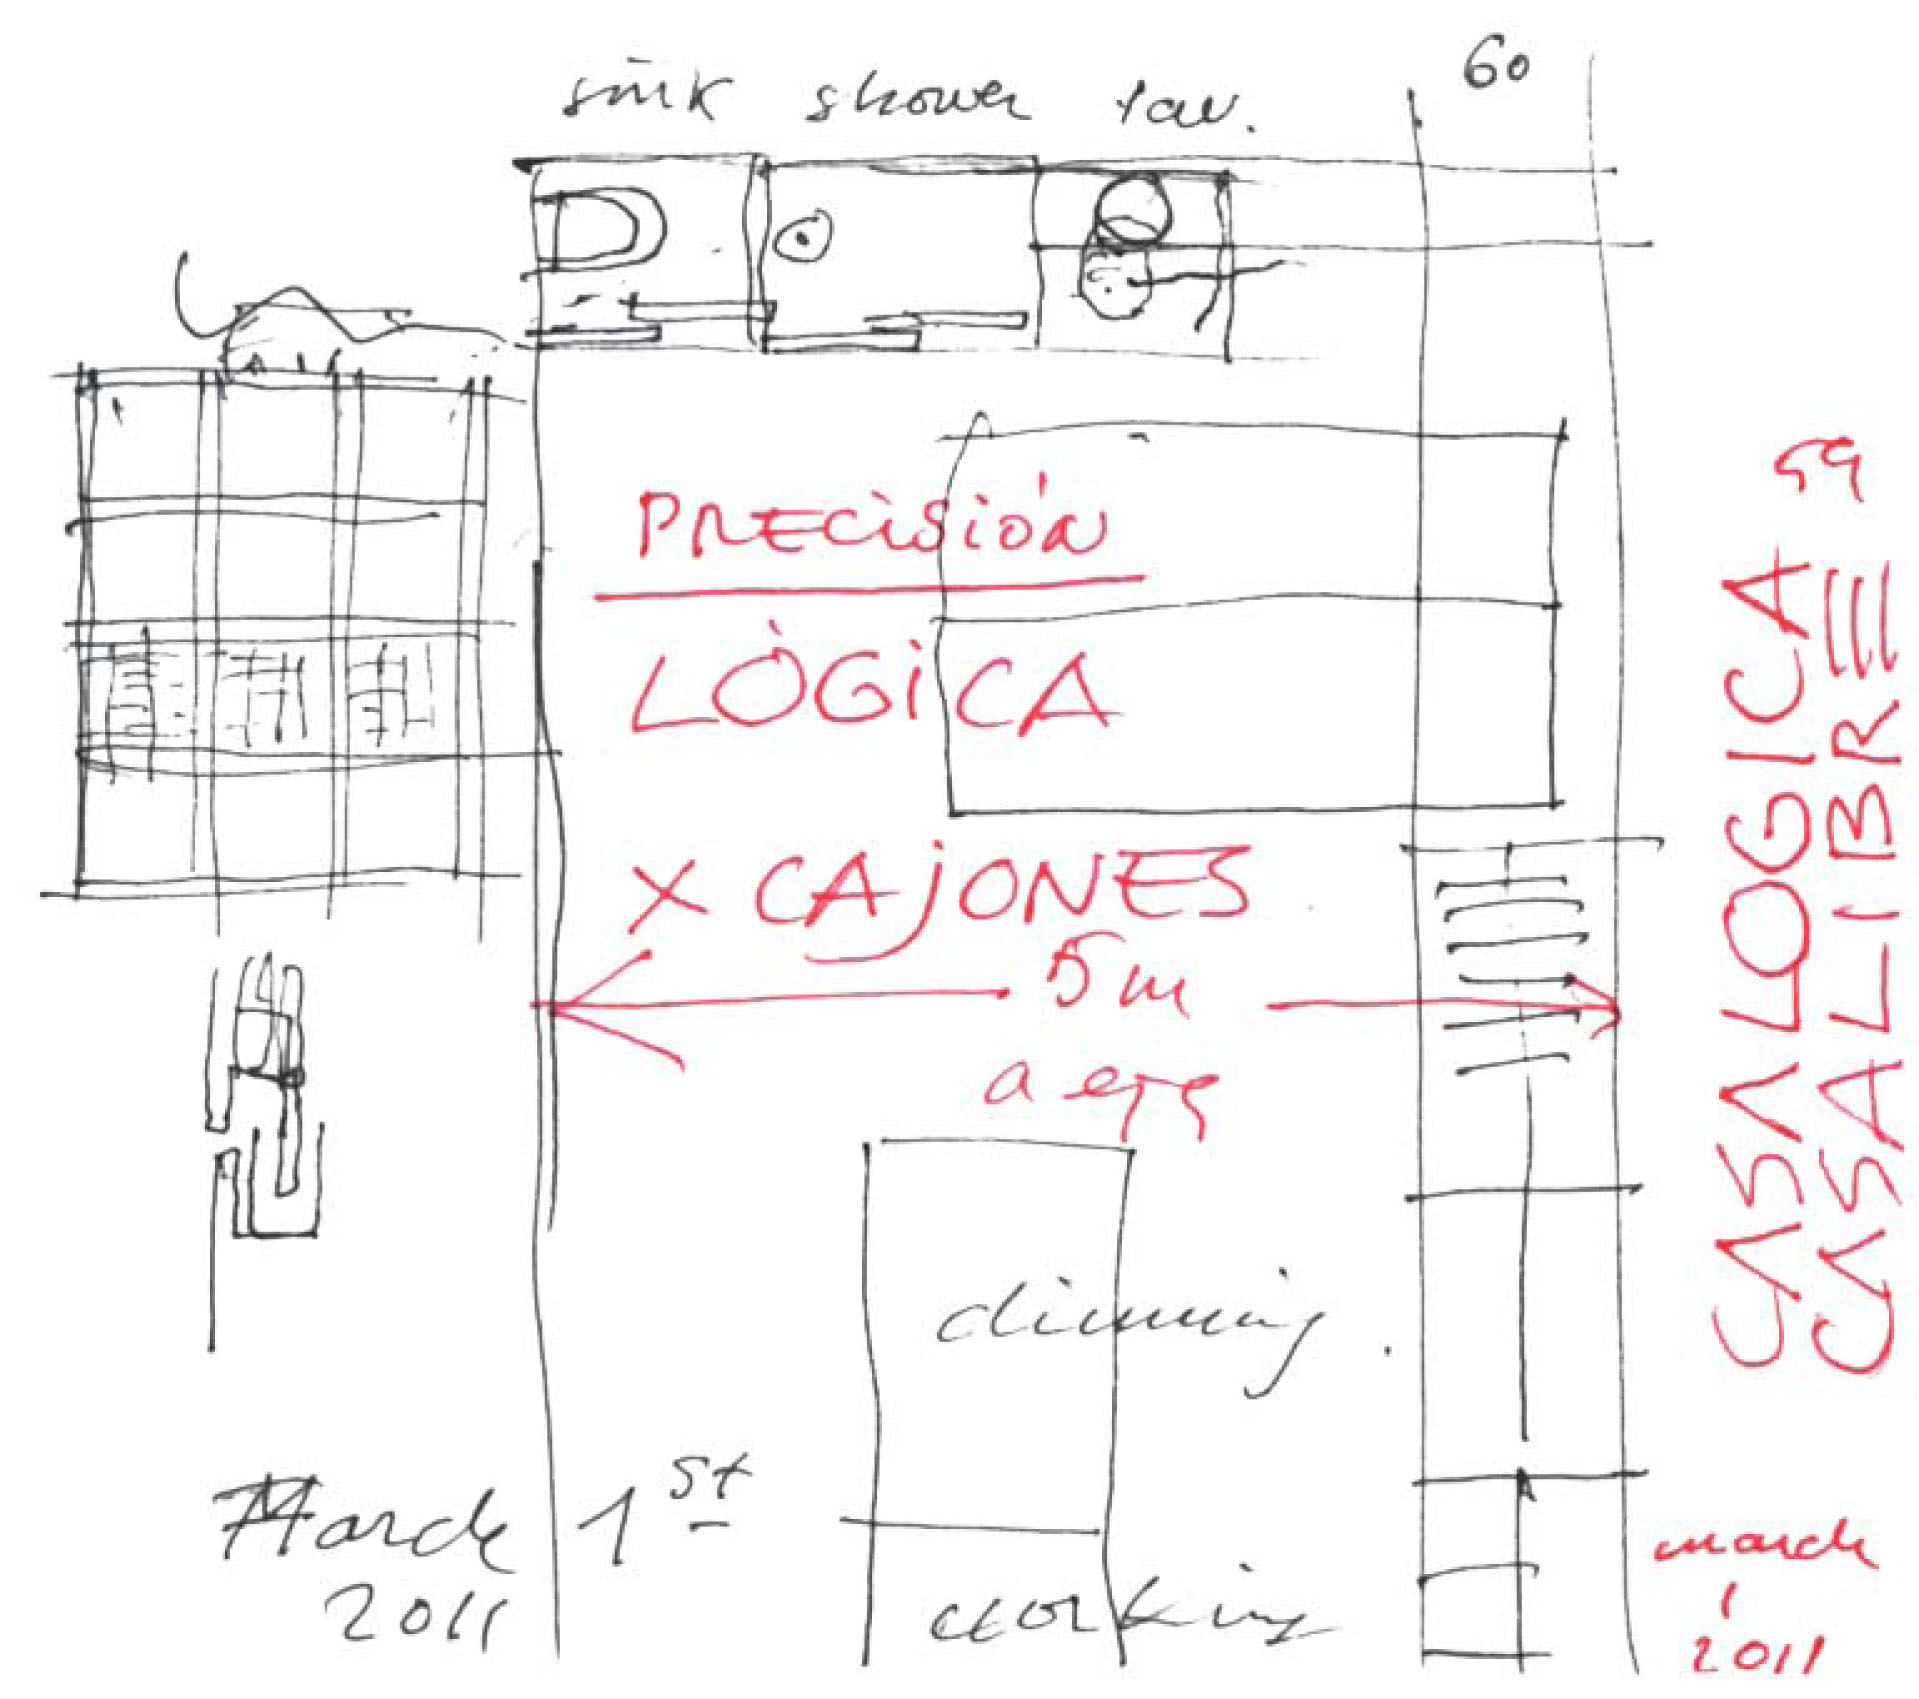 60
sink shower lav.
PRECISIÓN
LÓGICA
X CAJONES
5 m
a eje
dinning
March 1st
2011
CASA LOGICA
CASA LIBRE
march
1
2011